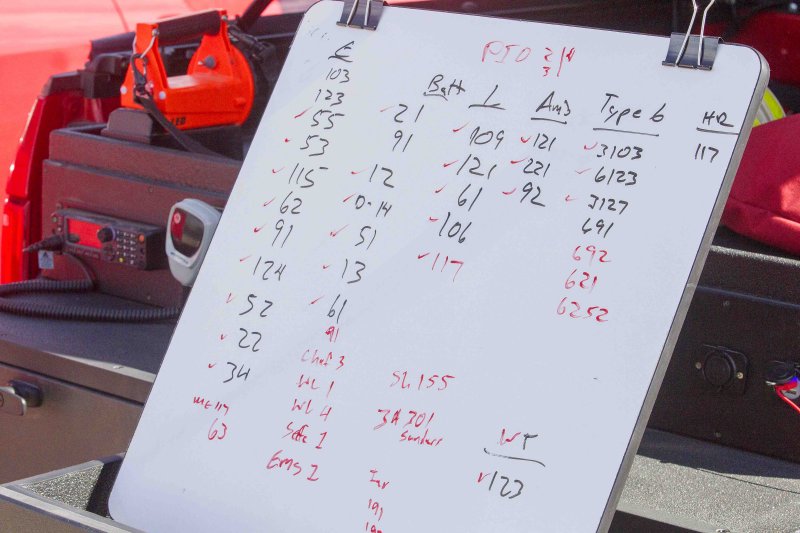 PIO 2/3/4
E
103
123
✓55
✓53
✓115
✓62
✓91
✓124
✓52
✓22
✓34
63
Batt
✓21
91
✓12
✓51
✓13
✓61
91
Chief 3
WL 1
WL 4
Safe 1
EMS 2
L
✓109
✓121
✓61
✓106
✓117
155
301
191
Amb
✓121
✓221
✓92
Type 6
✓3103
✓6123
✓3127
691
692
621
6252
117
WT
✓123
LED